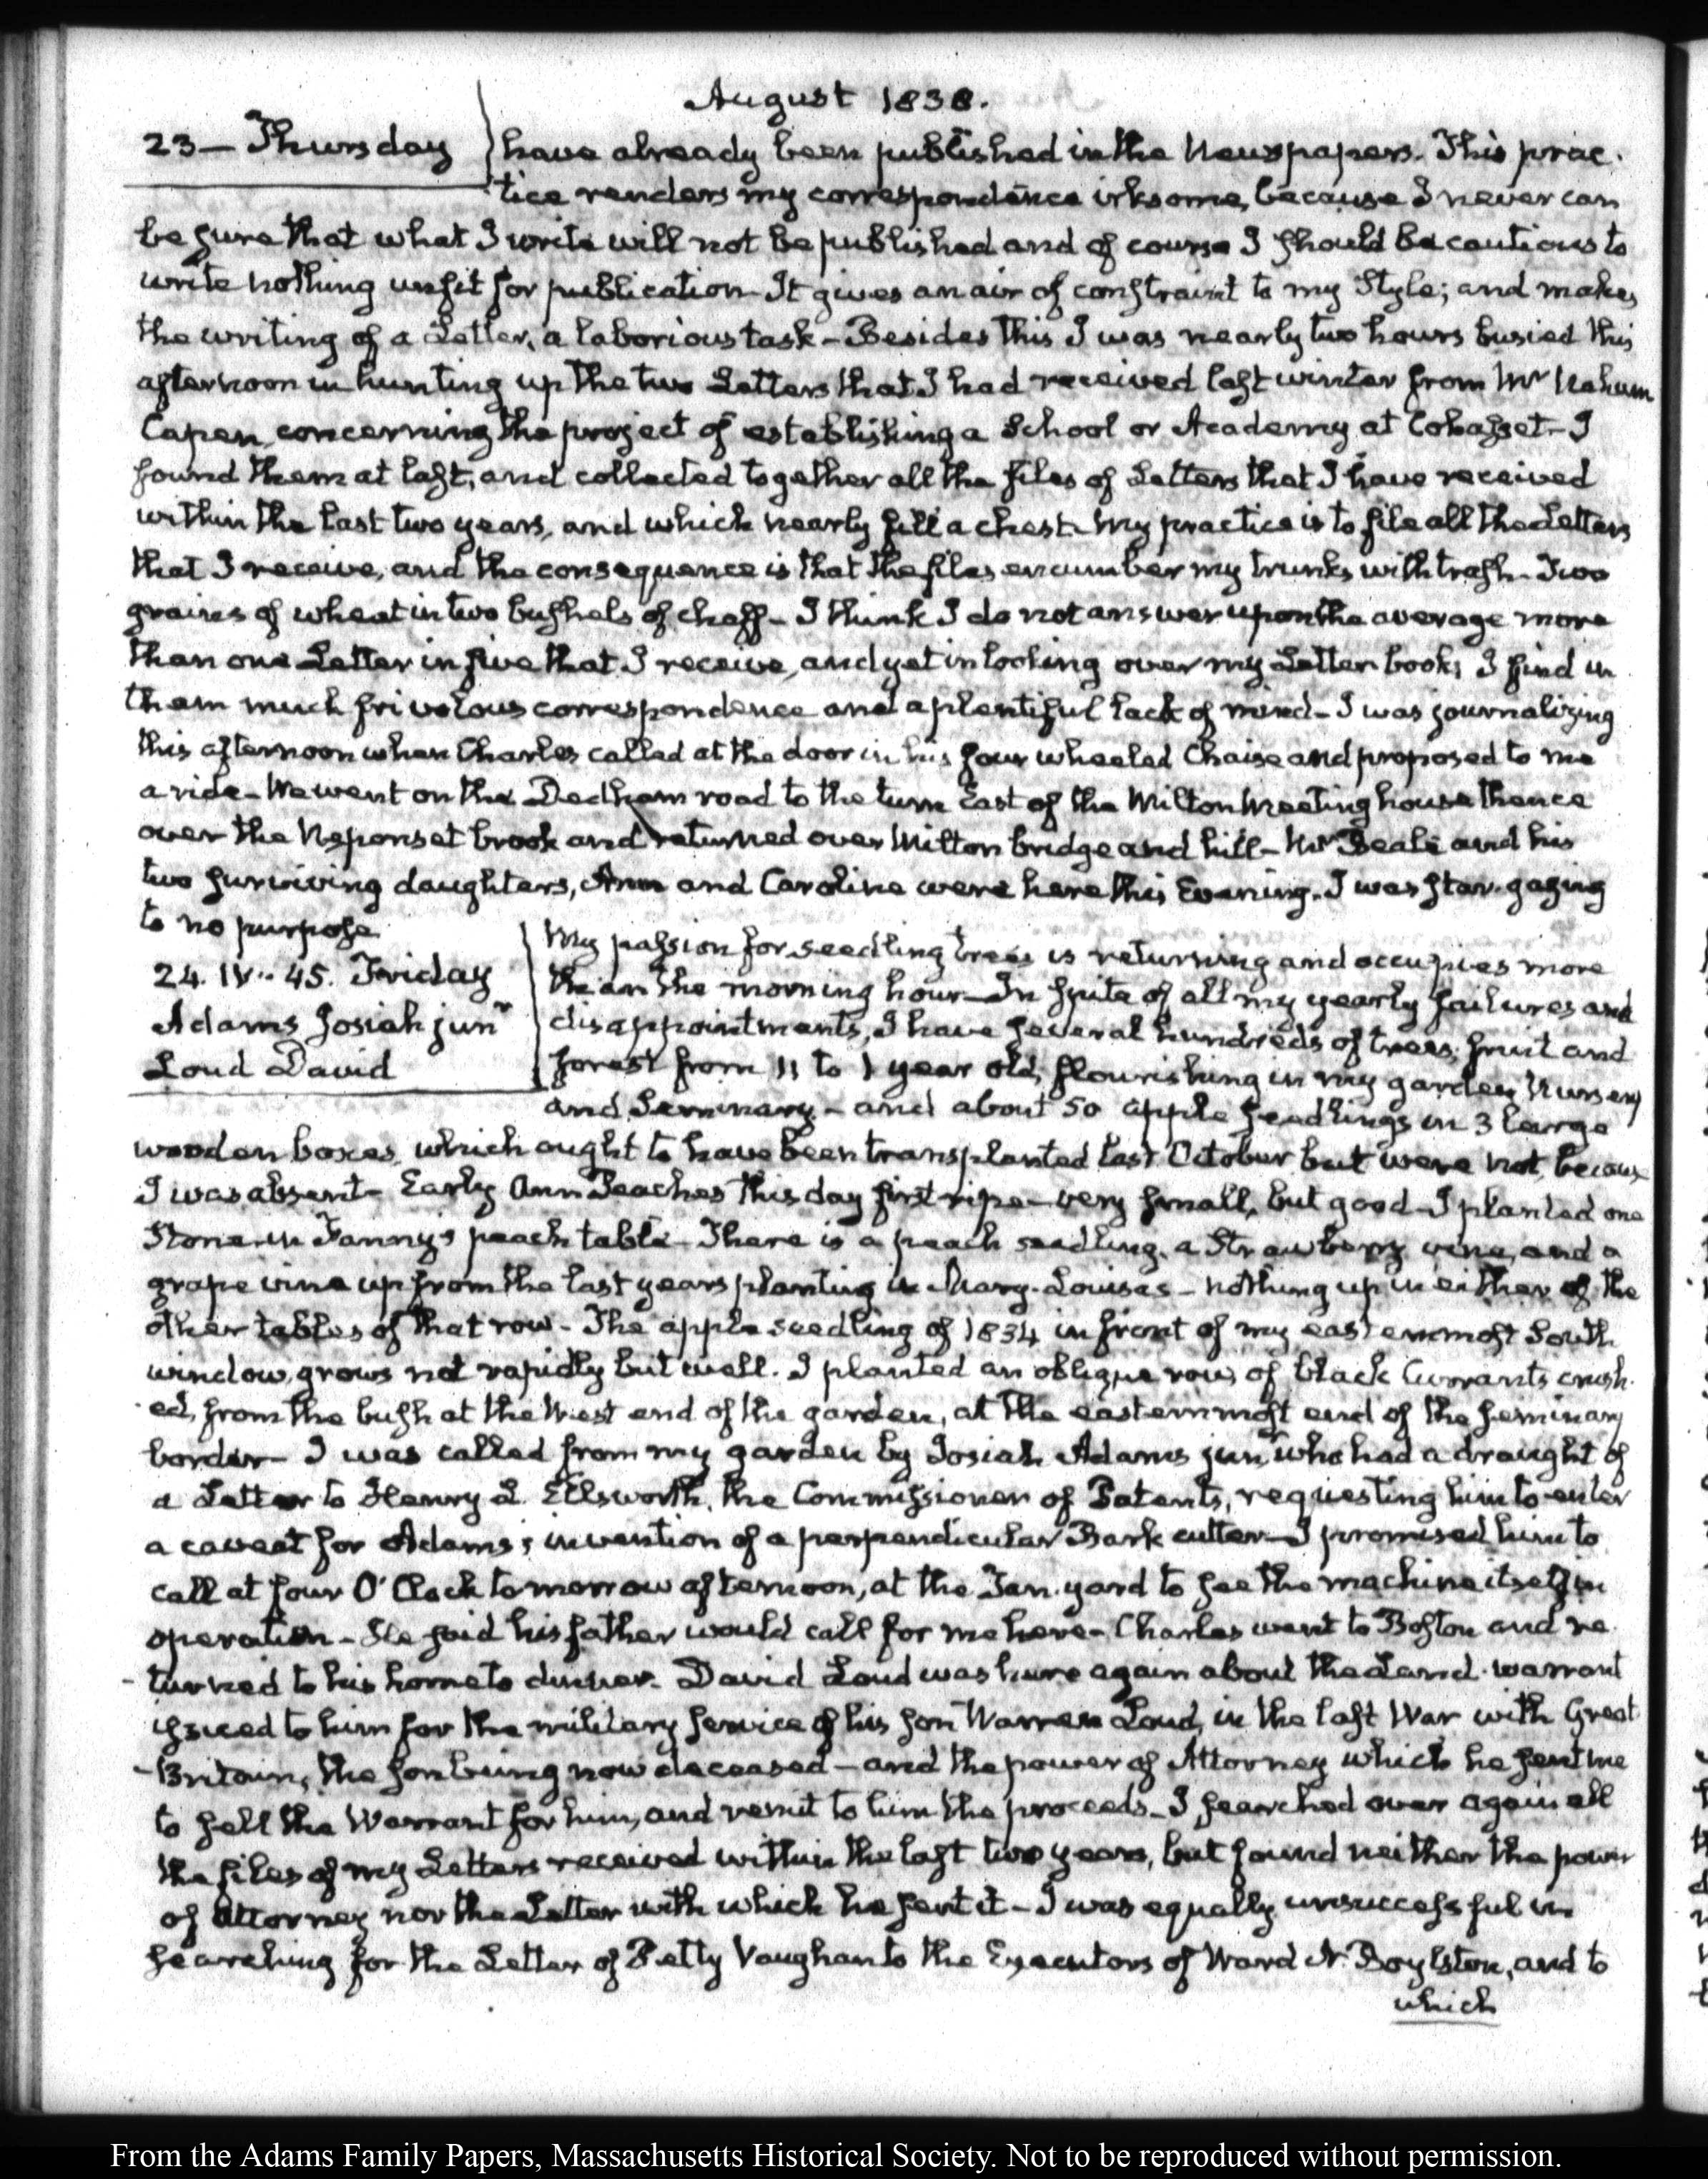 August 1838.
23 — Thursday
have already been published in the Newspapers. This prac-
tice renders my correspondence irksome, because I never can
be sure that what I write will not be published and of course I should be cautious to
write nothing unfit for publication — It gives an air of constraint to my Style; and makes
the writing of a Letter, a laborious task — Besides this I was nearly two hours busied this
afternoon in hunting up the two Letters that I had received last winter from Mr Nahum
Capen, concerning the project of establishing a School or Academy at Cohasset — I
found them at last, and collected together all the files of Letters that I have received
within the last two years, and which nearly fill a chest — My practice is to file all the Letters
that I receive, and the consequence is that the files encumber my trunks with trash — Two
grains of wheat in two bushels of chaff — I think I do not answer upon the average more
than one Letter in five that I receive, and yet in looking over my Letter books I find in
them much frivolous correspondence and a plentiful lack of mind — I was journalizing
this afternoon when Charles called at the door in his four wheeled Chaise and proposed to me
a ride — We went on the Dedham road to the turn East of the Milton Meeting house thence
over the Neponset brook and returned over Milton bridge and hill — Mr Beale and his
two surviving daughters, Ann and Caroline were here this Evening. I was star-gazing
to no purpose.
24. IV.. 45. Friday
Adams Josiah junr
Loud David
My passion for seedling trees is returning and occupies more
than the morning hour — In spite of all my yearly failures and
disappointments, I have several hundreds of trees, fruit and
forest from 11 to 1 year old, flourishing in my garden, Nursery
and Seminary — and about 50 apple seedlings in 3 large
wooden boxes, which ought to have been transplanted last October but were not, because
I was absent — Early Ann Peaches this day first ripe — very small, but good — I planted one
Stone in Fanny's peach table — There is a peach seedling, a Strawberry vine, and a
grape vine up from the last years planting in Mary-Louisas — nothing up in either of the
other tables of that row — The apple seedling of 1834 in front of my easternmost South
window, grows not rapidly but well. I planted an oblique row of black Currants crush-
ed, from the bush at the West end of the garden, at the easternmost end of the Seminary
border — I was called from my garden by Josiah Adams junr who had a draught of
a Letter to Henry L. Ellsworth, the Commissioner of Patents, requesting him to enter
a caveat for Adams's invention of a perpendicular Bark cutter — I promised him to
call at four O'Clock tomorrow afternoon, at the Tan-yard to see the machine itself in
operation — He said his father would call for me here — Charles went to Boston and re-
turned to his home to dinner — David Loud was here again about the Land-warrant
issued to him for the military service of his son Warren Loud, in the last War with Great
Britain, the son being now deceased — and the power of Attorney which he sent me
to sell the Warrant for him, and remit to him the proceeds — I searched over again all
the files of my Letters received within the last two years, but found neither the power
of Attorney nor the Letter with which he sent it — I was equally unsuccessful in
searching for the Letter of Petty Vaughan to the Executors of Ward N. Boylston, and to
which
From the Adams Family Papers, Massachusetts Historical Society. Not to be reproduced without permission.